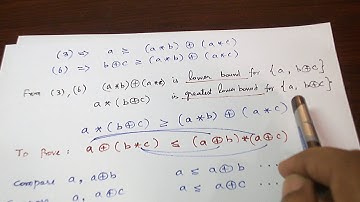 (3) => a ≥ (a*b) ⊕ (a*c)
(6) => b⊕c ≥ (a*b) ⊕ (a*c)
From (3), (6) (a*b)⊕(a*c) is lower bound for {a, b⊕c}
a*(b⊕c) is greatest lower bound for {a, b⊕c}
a*(b⊕c) ≥ (a*b) ⊕ (a*c)
To Prove: a⊕(b*c) ≤ (a⊕b)*(a⊕c)
Compare a, a⊕b a ≤ a⊕b ...
a, a⊕c a ≤ a⊕c ...